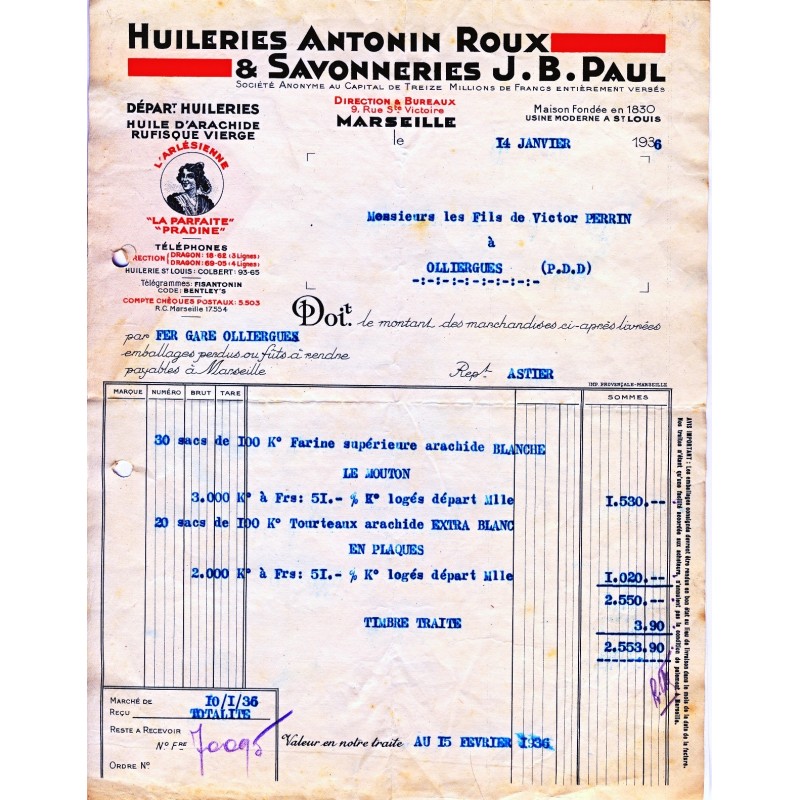 HUILERIES ANTONIN ROUX
& SAVONNERIES J. B. PAUL
SOCIÉTÉ ANONYME AU CAPITAL DE TREIZE MILLIONS DE FRANCS ENTIÈREMENT VERSÉS
DÉPART. HUILERIES
HUILE D'ARACHIDE
RUFISQUE VIERGE
L'ARLÉSIENNE
"LA PARFAITE"
"PRADINE"
TÉLÉPHONES
DIRECTION DRAGON: 18-62 (3 Lignes)
DRAGON: 69-05 (4 Lignes)
HUILERIE ST LOUIS: COLBERT: 93-65
Télégrammes: FISANTONIN
CODE: BENTLEY'S
COMPTE CHÈQUES POSTAUX: 5.503
R.C. Marseille 17.554
DIRECTION & BUREAUX
9, Rue Ste Victoire
MARSEILLE
Maison Fondée en 1830
USINE MODERNE A ST LOUIS
le 14 JANVIER 1936
Messieurs les Fils de Victor PERRIN
à
OLLIERGUES (P.D.D)
-:-:-:-:-:-:-:-:-
Doit. le montant des marchandises ci-après livrées
par FER GARE OLLIERGUES
emballages perdus ou fûts à rendre
payables à Marseille
Rept. ASTIER
IMP. PROVENÇALE-MARSEILLE
MARQUE NUMÉRO BRUT TARE SOMMES
30 sacs de 100 K° Farine supérieure arachide BLANCHE
LE MOUTON
3.000 K° à Frs: 51.- % K° logés départ Mlle 1.530,--
20 sacs de 100 K° Tourteaux arachide EXTRA BLANC
EN PLAQUES
2.000 K° à Frs: 51.- % K° logés départ Mlle 1.020,--
2.550,--
TIMBRE TRAITE 3,90
2.553,90
AVIS IMPORTANT: Les emballages consignés devront être rendus en bon état au lieu de livraison dans le mois de la date de la facture.
Nos traites n'étant qu'une facilité accordée aux acheteurs, n'annulent pas la condition de paiement à Marseille.
MARCHÉ DE 10/1/36
REÇU TOTALITE
RESTE A RECEVOIR
N° FRE
ORDRE N°
Valeur en notre traite AU 15 FEVRIER 1936